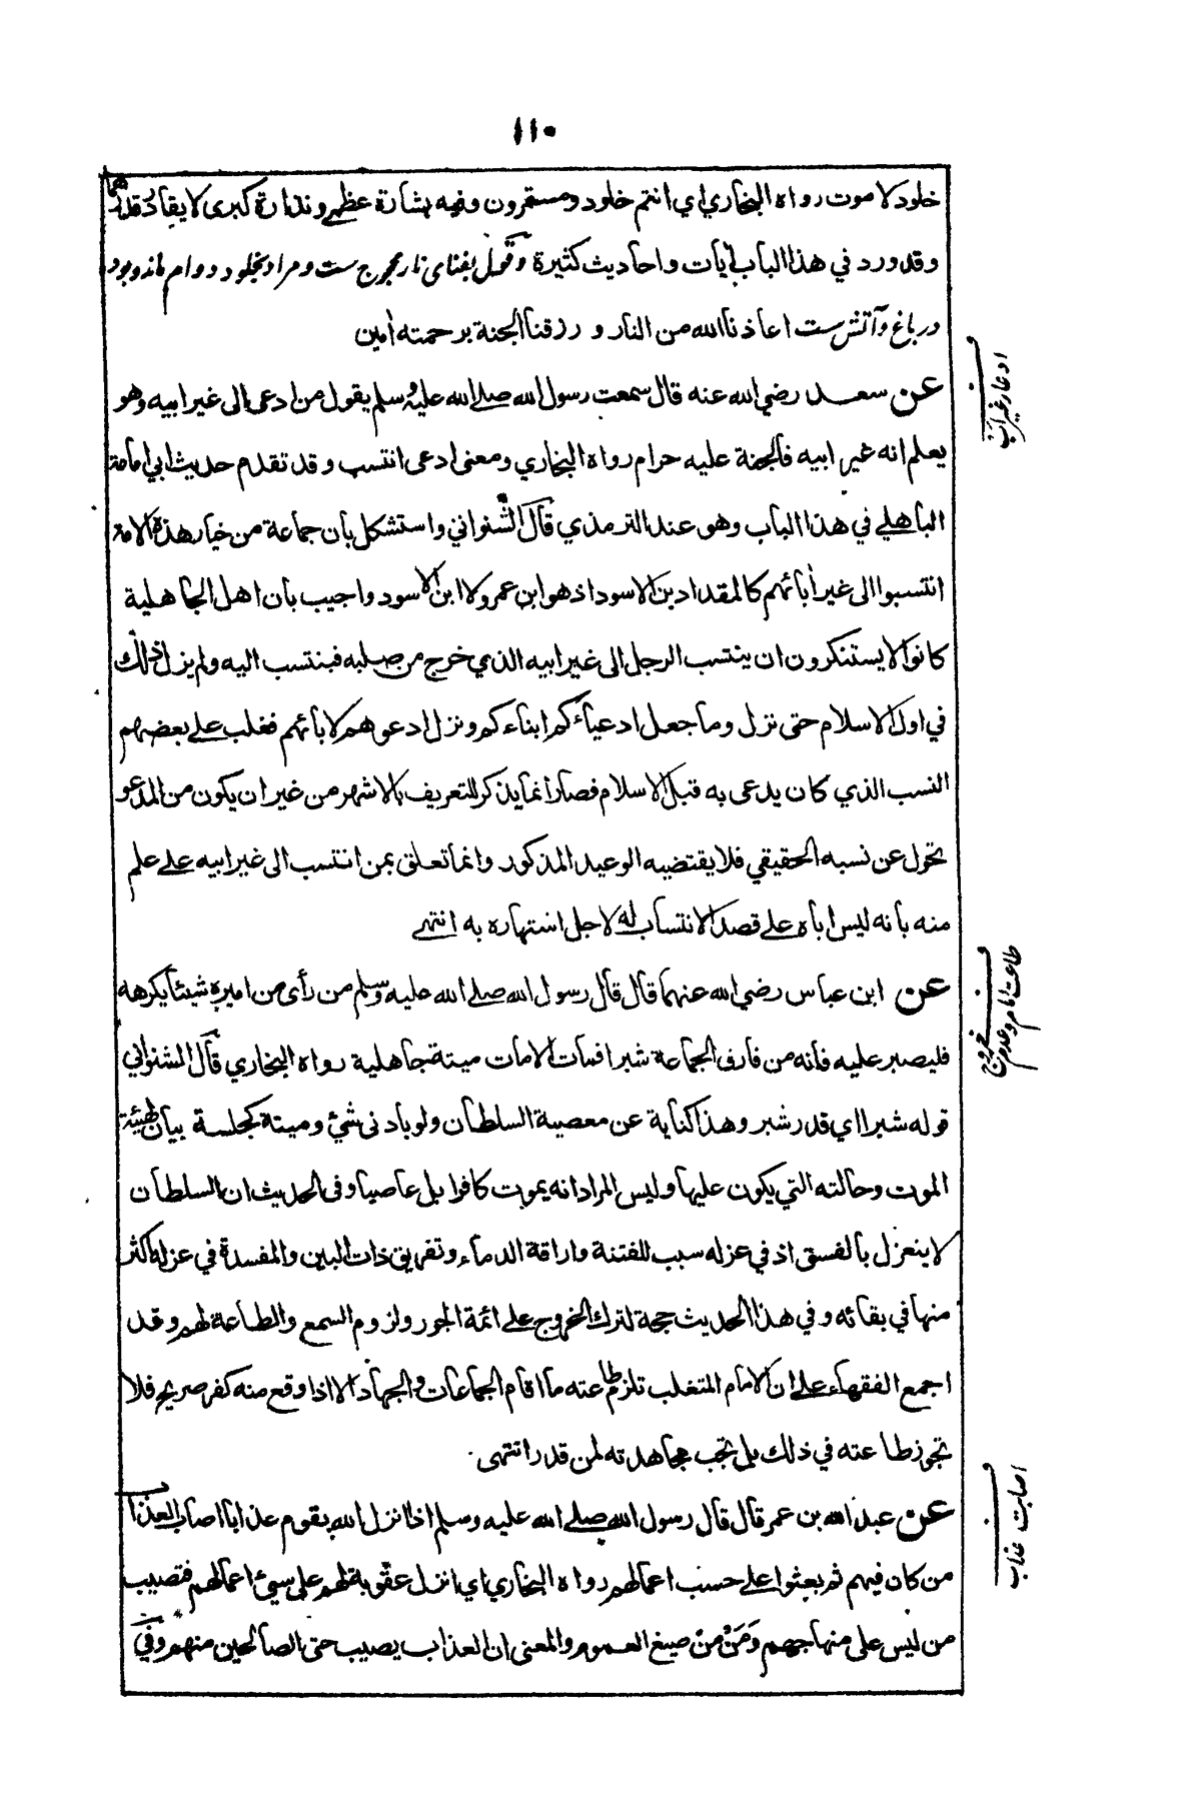 ١١٠
خلود لا موت رواه البخاري اي انتم خلود ومستمرون وفيه بشارة عظمے ونذارة كبرى لا يقادر قدرهما
وقد ورد في هذا الباب آيات واحاديث كثيرة وقول بفنای نار مجروح ست ومراد بخلود دوام ماند وبود
در باغ وآتش ست اعاذنا الله من النار و رزقنا الجنة برحمته امين
عن سعد رضي الله عنه قال سمعت رسول الله صلے الله عليه وسلم يقول من ادعى الى غير ابيه وهو
يعلم انه غير ابيه فالجنة عليه حرام رواه البخاري ومعنى ادعى انتسب وقد تقدم حديث ابي امامة
الباهلے في هذا الباب وهو عند الترمذي قال الشنواني واستشكل بأن جماعة من خيار هذه الامة
انتسبوا الى غير آبائهم كالمقداد بن الاسود اذ هو ابن عمرو لا ابن الاسود واجيب بأن اهل الجاهلية
كانوا لا يستنكرون ان ينتسب الرجل الى غير ابيه الذي خرج من صلبه فينتسب اليه ولم يزل ذلك
في اول الاسلام حتى نزل وما جعل ادعياءكم ابناءكم ونزل ادعوهم لآبائهم فغلب علے بعضهم
النسب الذي كان يدعى به قبل الاسلام فصار انما يذكر للتعريف بالاشهر من غير ان يكون من المدعو
تحول عن نسبه الحقيقي فلا يقتضيه الوعيد المذكور وانما تعلق بمن انتسب الى غير ابيه علے علم
منه بأنه ليس اباه علے قصد الانتساب له لا جل اشتهاره به انتهے
عن ابن عباس رضي الله عنهما قال قال رسول الله صلے الله عليه وسلم من رأى من اميره شيئا يكرهه
فليصبر عليه فانه من فارق الجماعة شبرا فمات الامات ميتة جاهلية رواه البخاري قال الشنواني
قوله شبرا اي قدر شبر وهذا كناية عن معصية السلطان ولو بادنى شئ وميتة كجلسة بيان لهيئة
الموت وحالته التي يكون عليها وليس المراد انه يموت كافرا بل عاصيا وفى الحديث ان السلطان
لا ينعزل بالفسق اذ في عزله سبب للفتنة واراقة الدماء وتفريق ذات البين والمفسدة في عزله اكثر
منها في بقائه وفي هذا الحديث حجة لترك الخروج علے ائمة الجور ولزوم السمع والطاعة لهم وقد
اجمع الفقهاء علے ان الامام المتغلب تلزم طاعته ما اقام الجماعات والجهاد الا اذا وقع منه كفر صريح فلا
تجوز طاعته في ذلك بل تجب مجاهدته لمن قدر انتهى
عن عبد الله بن عمر قال قال رسول الله صلے الله عليه وسلم اذا انزل الله بقوم عذابا اصاب العذاب
من كان فيهم ثم بعثوا علے حسب اعمالهم رواه البخاري اي انزل عقوبة لهم على سيئ اعمالهم فتصيب
من ليس على منهاجهم ومن من صيغ العموم والمعنى ان العذاب يصيب حتى الصالحين منهم وفي
ف ادعاء غير اب
ف طاعت امام وعدم خروج
ف اصابت عذاب